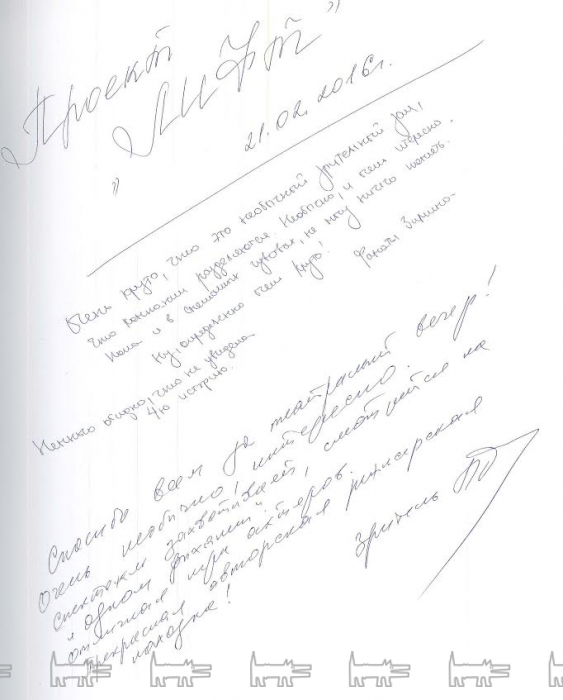 Проект
"Лифт"
21.02.2016г.
Очень круто, что это необычный зрительный зал,
что рассказы разделяются. Необычно, и очень интересно.
Пока и в смешанных чувствах, не могу ничего понять.
Но, определенно очень круто!
Фанаты
Немного обидно, что не увидела
4ю историю.
Спасибо всем за театральный вечер!
Очень необычно, интересно.
Спектакль захватывает, смотрится на
"одном дыхании".
Отличная игра актеров.
Прекрасная авторская режиссерская
находка!
Зритель